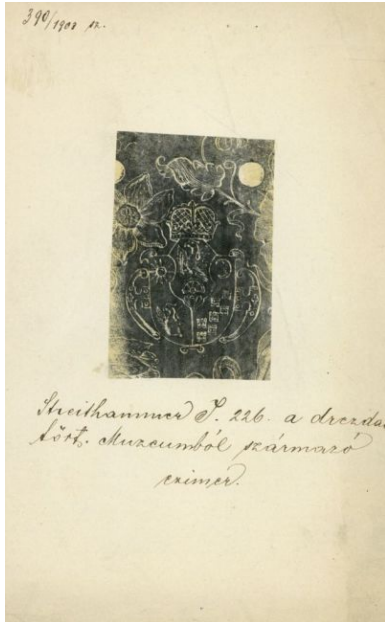 390/1903 sz.
Streithammer J. 226. a drezdai
tört. Muzeumból származó
czimer.